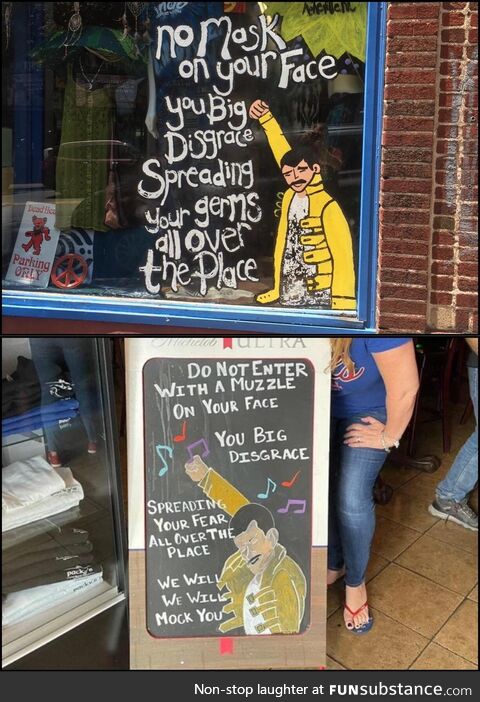 no Mask
on your Face
you Big
Disgrace
Spreading
your germs
all over
the Place
Parking
ONLY
Michelob ULTRA
DO NOT ENTER
WITH A MUZZLE
ON YOUR FACE
YOU BIG
DISGRACE
SPREADING
YOUR FEAR
ALL OVER THE
PLACE
WE WILL
WE WILL
MOCK YOU
Non-stop laughter at FUNsubstance.com